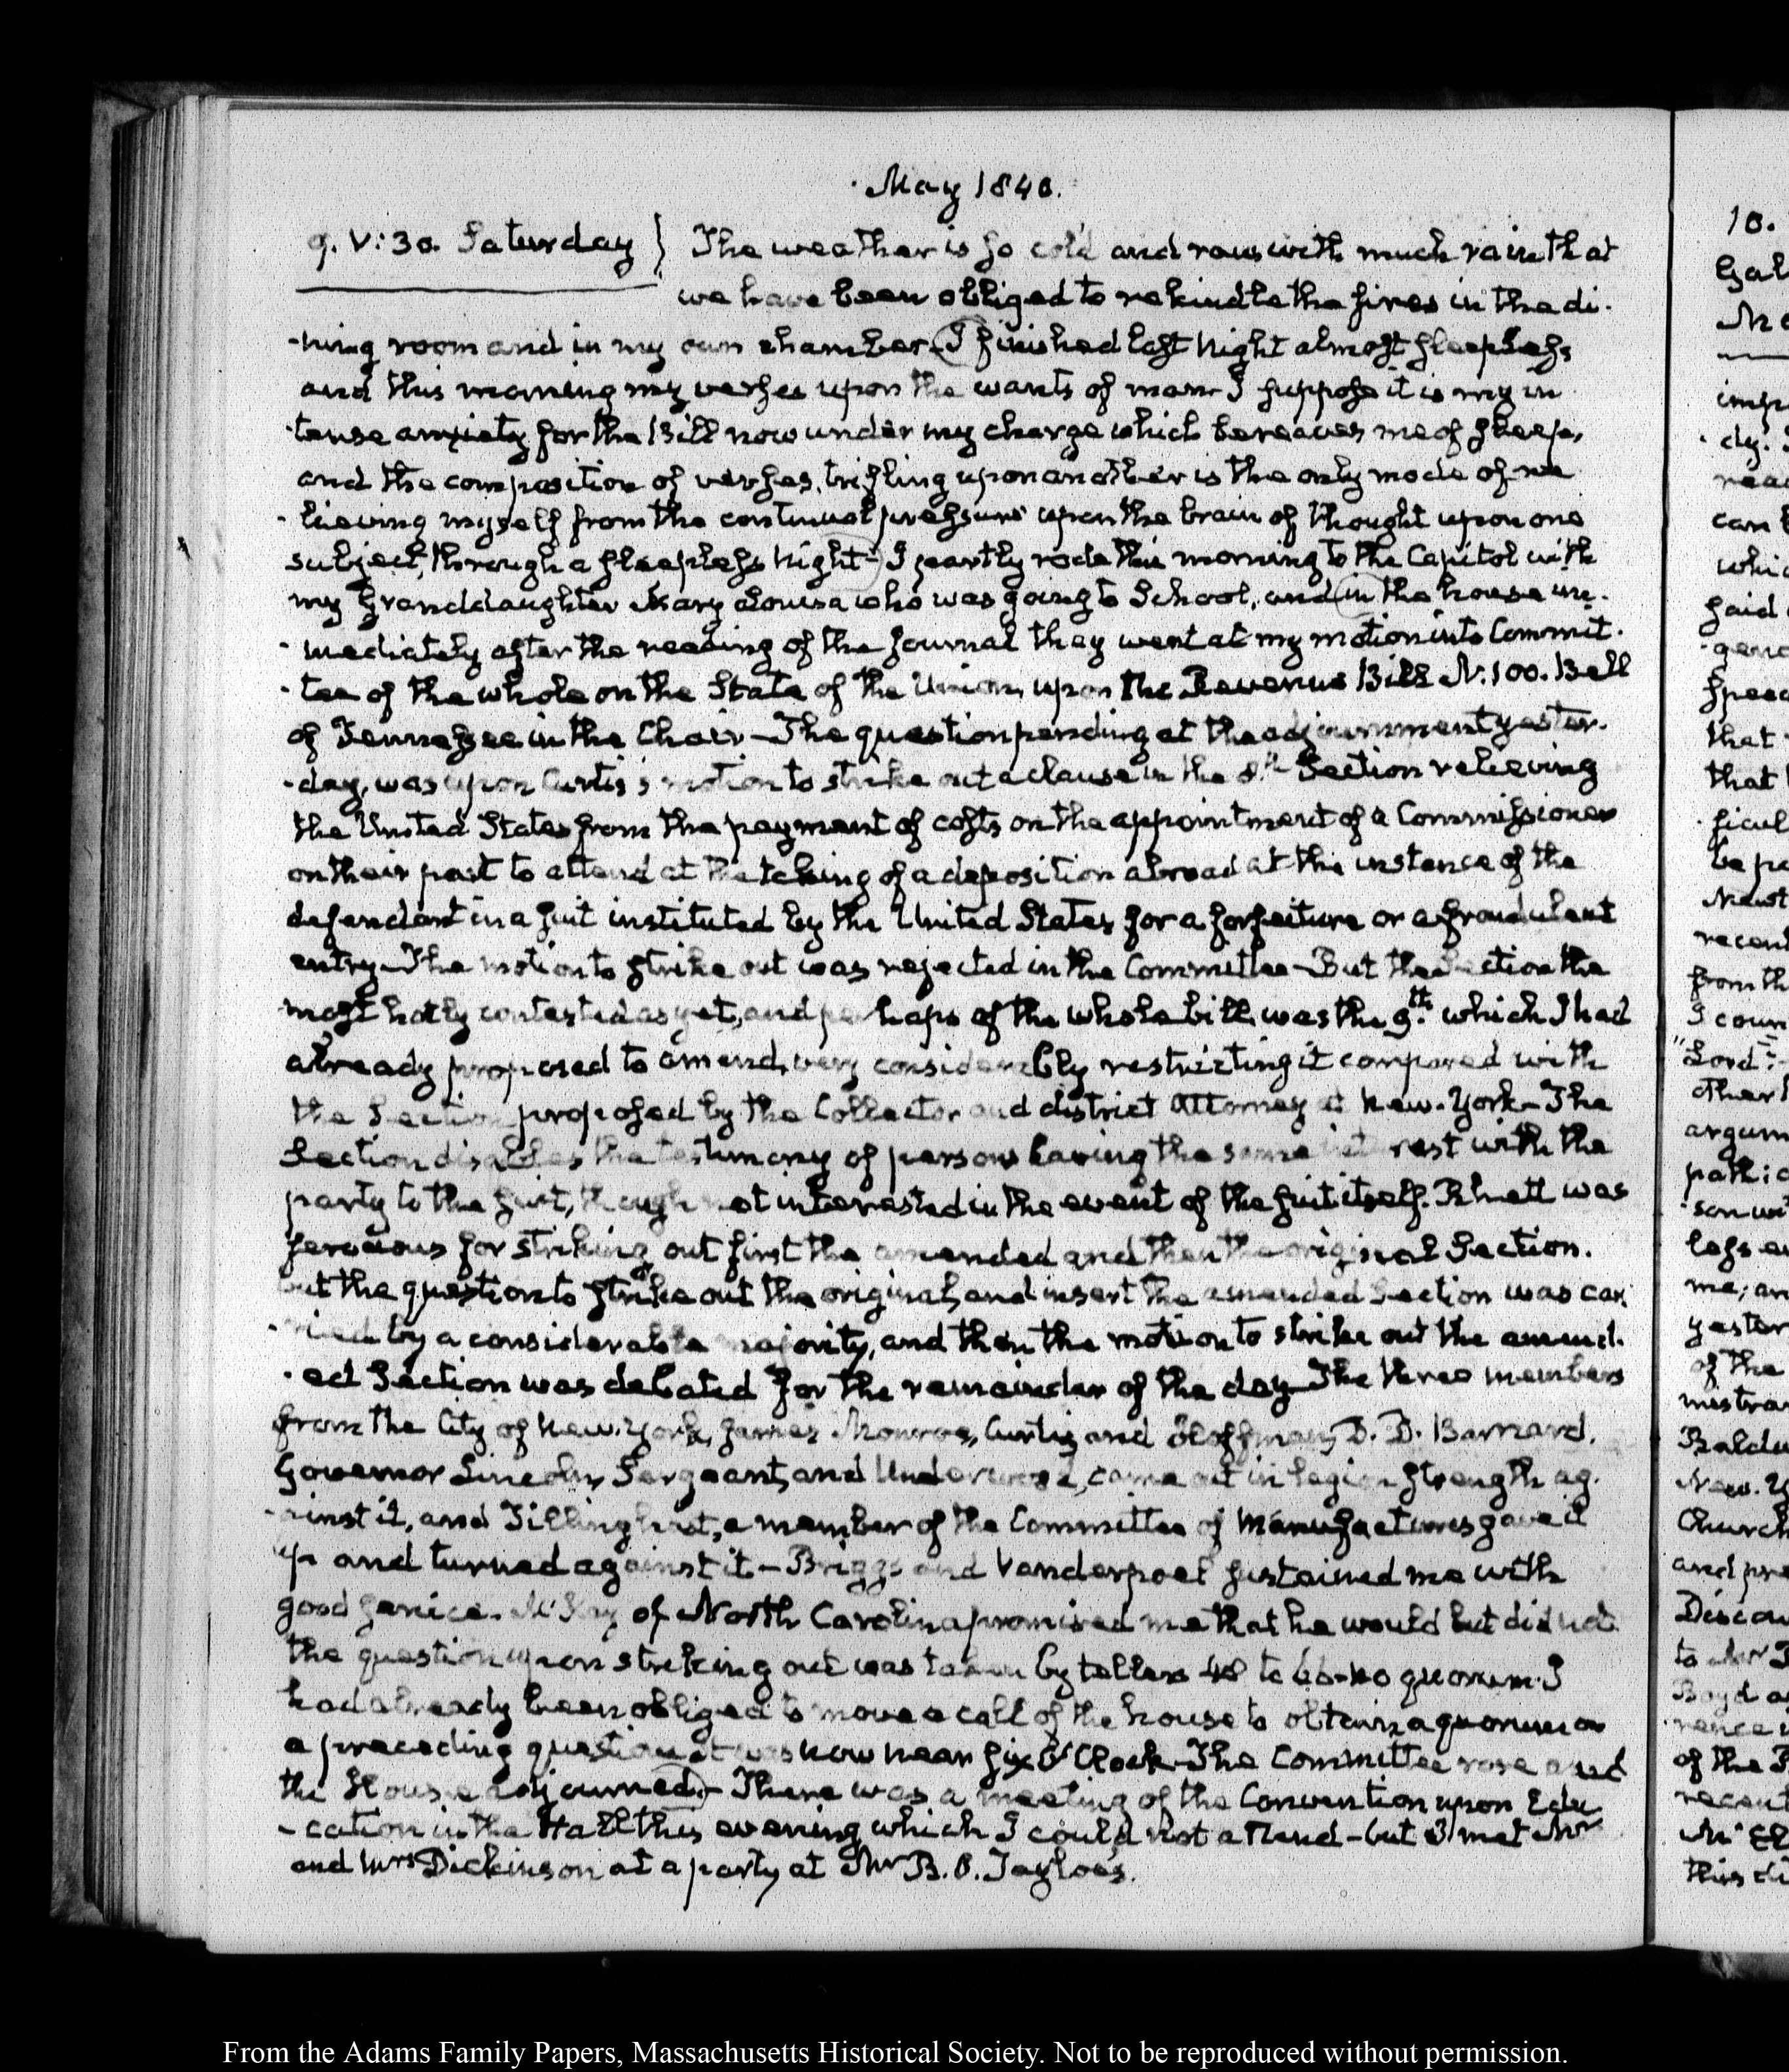 May 1840.
9. V:30. Saturday } The weather is so cold and raw with much rain that
we have been obliged to rekindle the fires in the di-
-ning room and in my own chamber. I finished last Night almost sleepless
and this morning my verses upon the wants of man. I suppose it is my in
-tense anxiety for the Bill now under my charge which bereaves me of sleep,
and the composition of verses, trifling upon another is the only mode of re
-lieving myself from the continual pressure upon the brain of thought upon one
subject, through a sleepless Night - I partly rode this morning to the Capitol with
my Granddaughter Mary Louisa who was going to School, and in the house im-
-mediately after the reading of the Journal they went at my motion into Commit-
-tee of the whole on the State of the Union, upon the Revenue Bill N. 100. Bell
of Tennessee in the Chair - The question pending at the adjournment yester-
-day, was upon Curtis's motion to strike out a clause in the 8th Section relieving
the United States from the payment of costs on the appointment of a Commissioner
on their part to attend at the taking of a deposition abroad at the instance of the
defendant in a suit instituted by the United States for a forfeiture or a fraudulent
entry - The motion to strike out was rejected in the Committee - But the Section the
most hotly contested as yet, and perhaps of the whole bill was the 9th which I had
already proposed to amend, very considerably restricting it compared with
the Section proposed by the Collector and district Attorney at New-York - The
Section disables the testimony of persons having the same interest with the
party to the suit, though not interested in the event of the suit itself. Rhett was
ferocious for striking out first the amended and then the original Section.
but the question to strike out the original, and insert the amended Section was car
-ried by a considerable majority, and then the motion to strike out the amend-
-ed Section was debated for the remainder of the day - The three members
from the City of New-York, James Monroe, Curtis and Hoffman, D. D. Barnard,
Governor Lincoln, Sergeant, and Underwood, came out in legion strength ag-
-ainst it, and Tillinghast, a member of the Committee of Manufactures gave it
up and turned against it - Briggs and Vanderpoel sustained me with
good service. McKay of North Carolina promised me that he would but did not.
the question upon striking out was taken by tellers 48 to 66 - no quorum. I
had already been obliged to move a call of the house to obtain a quorum on
a preceding question it was now near six O'Clock - The Committee rose and
the House adjourned. - There was a meeting of the Convention upon Edu
-cation in the Hall this evening which I could not attend - but I met Mr
and Mrs Dickinson at a party at Mr B. O. Tayloe's.
10.
From the Adams Family Papers, Massachusetts Historical Society. Not to be reproduced without permission.